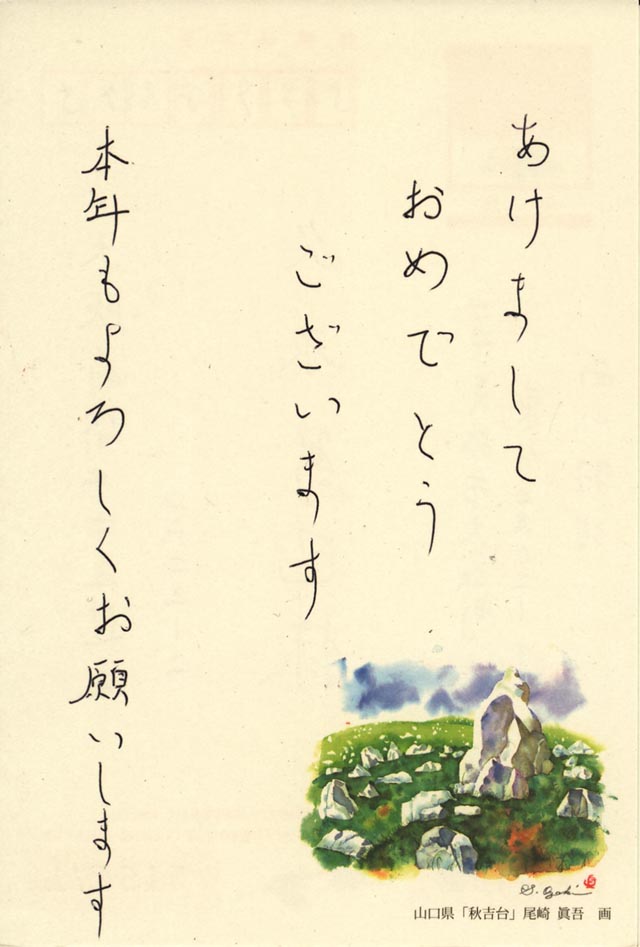 あけまして
おめでとう
ございます
本年もよろしくお願いします
S. Ozaki
山口県「秋吉台」尾崎 眞吾 画